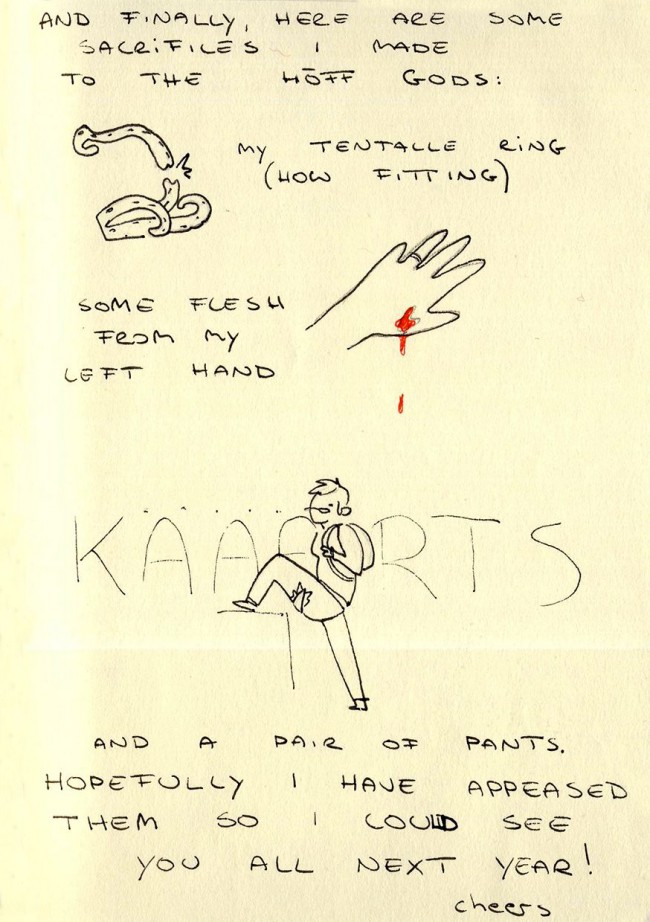 AND FINALLY, HERE ARE SOME
SACRIFICES I MADE
TO THE HŌFF GODS:
MY TENTACLE RING
(HOW FITTING)
SOME FLESH
FROM MY
LEFT HAND
KÄÄÄRTS
AND A PAIR OF PANTS.
HOPEFULLY I HAVE APPEASED
THEM SO I COULD SEE
YOU ALL NEXT YEAR!
cheers